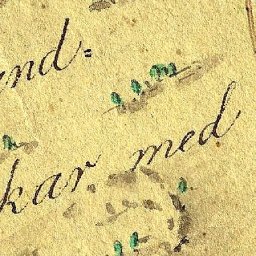 ınd.
kar med